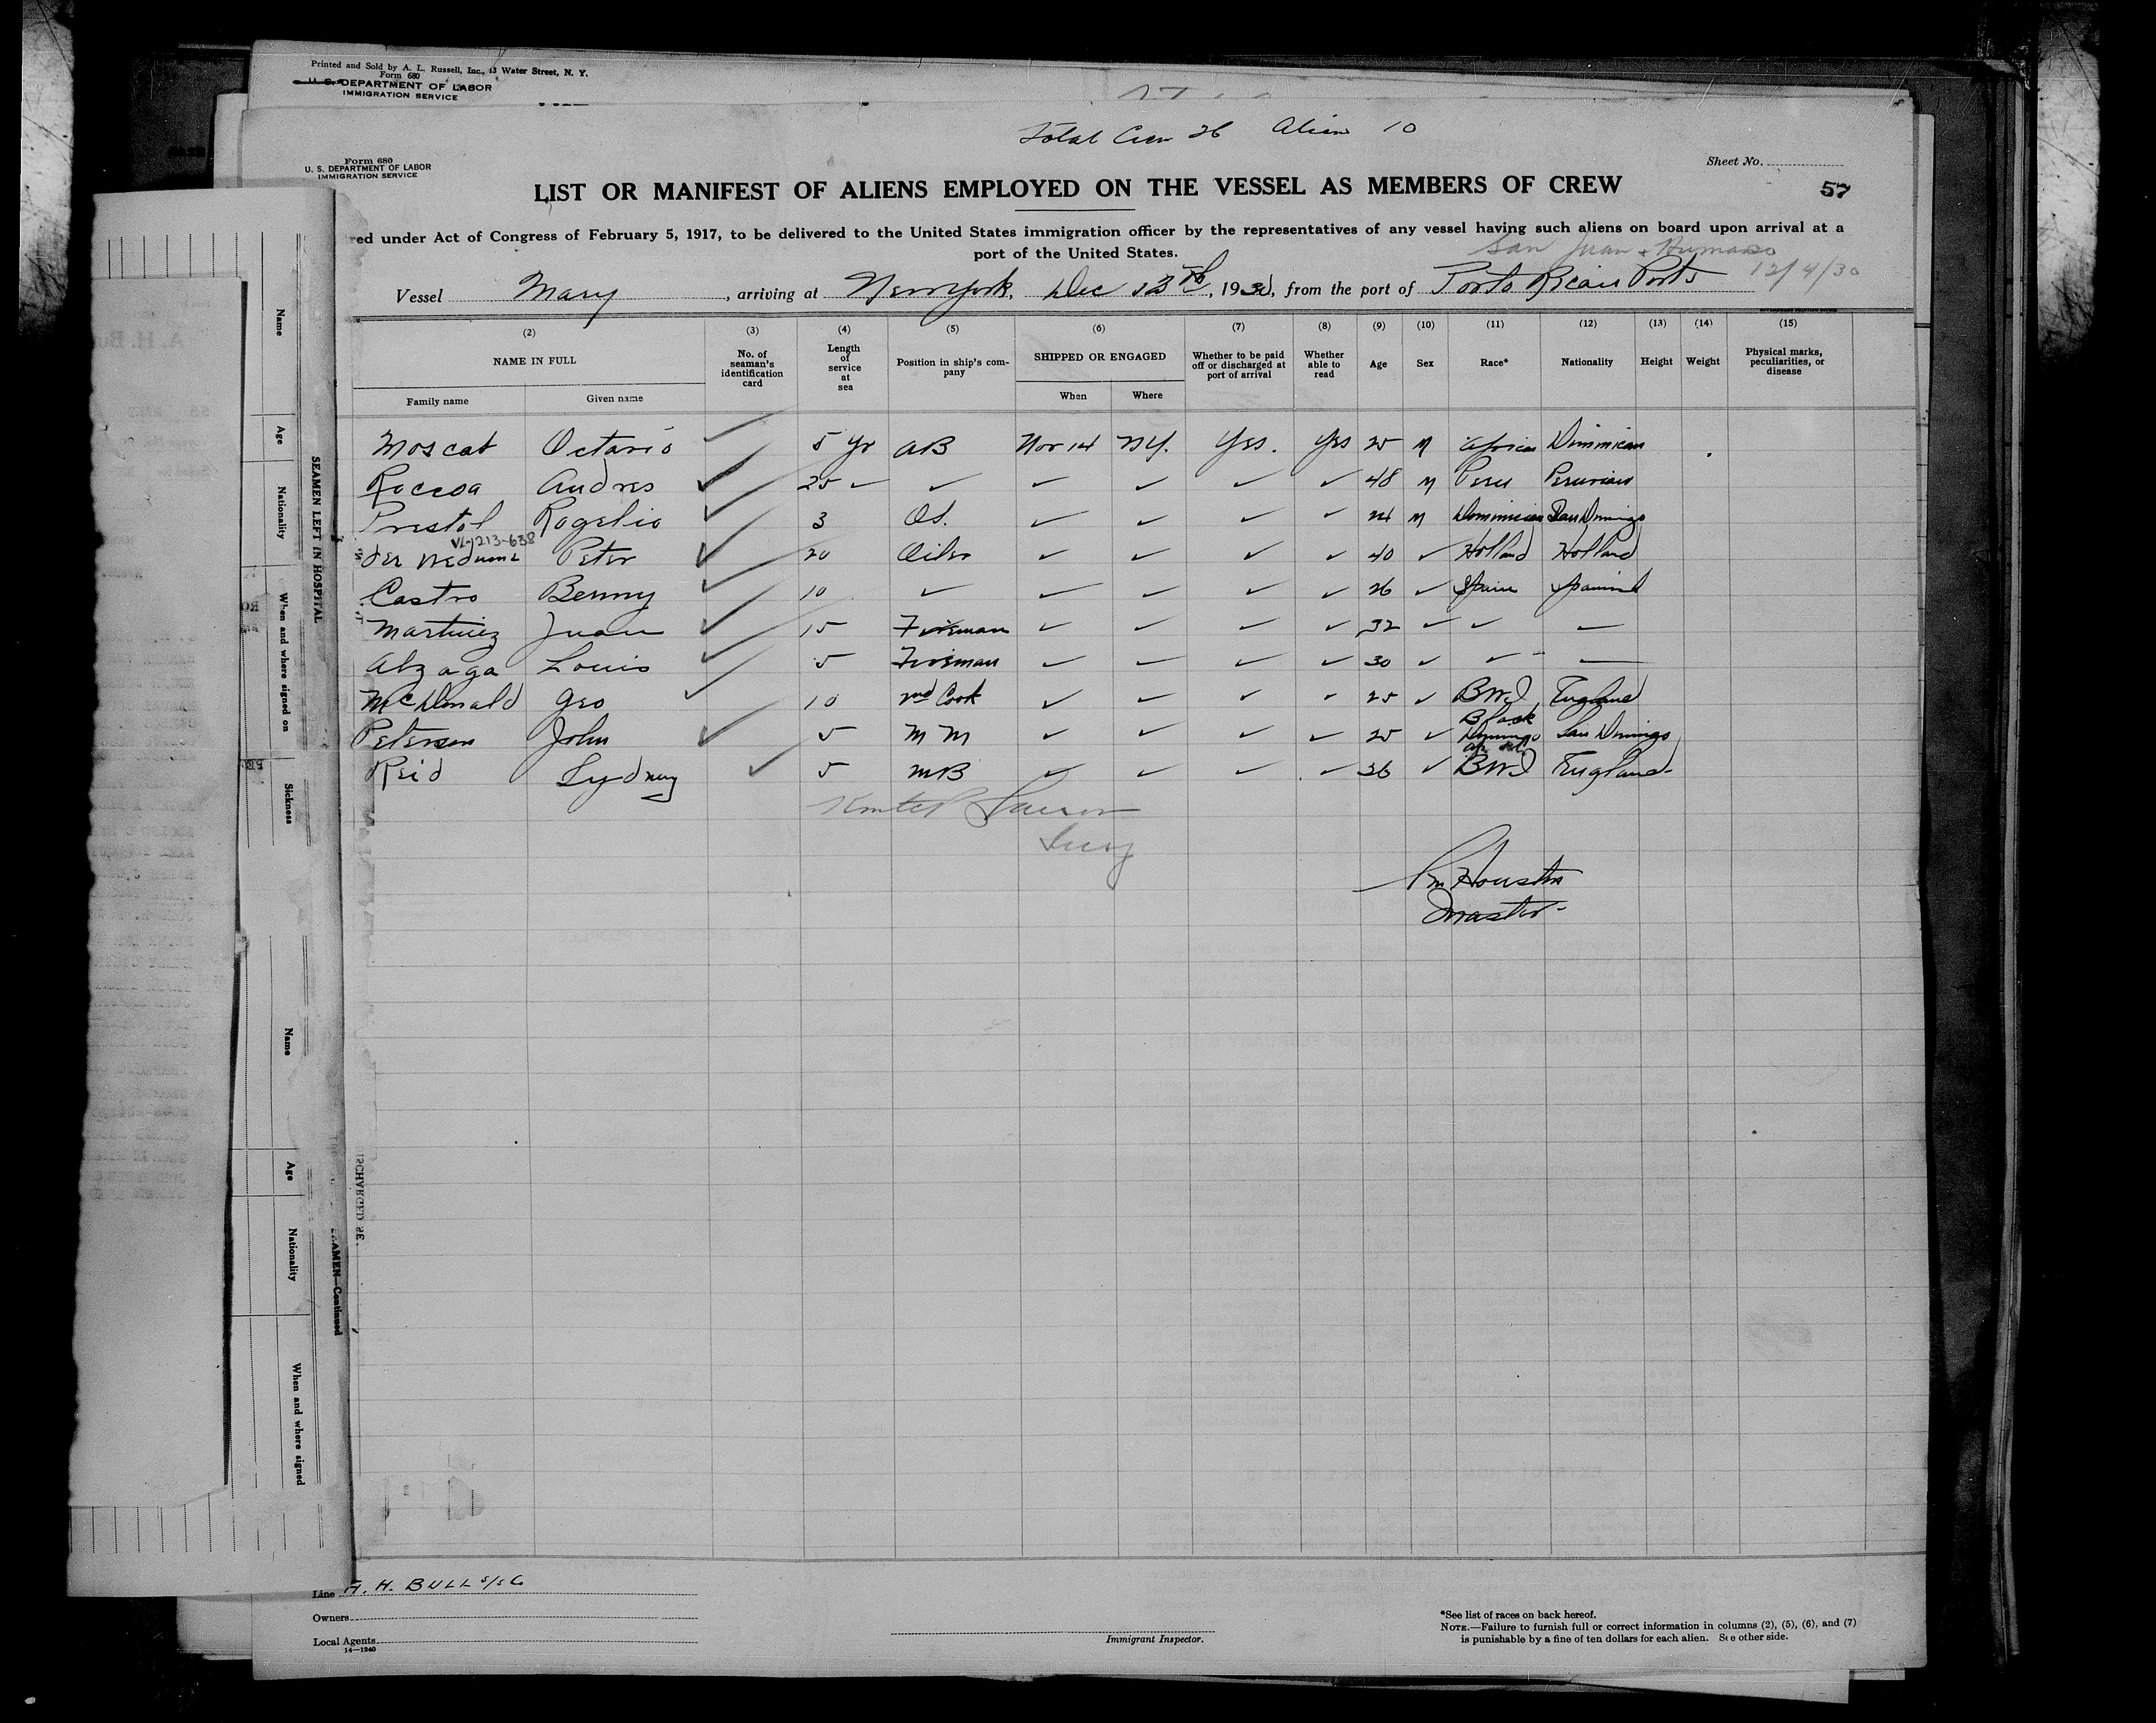 Printed and Sold by A. L. Russell, Inc., 13 Water Street, N. Y.
Form 680
U. S. DEPARTMENT OF LABOR
IMMIGRATION SERVICE
Total Crew 26 Alien 10
Form 680
U. S. DEPARTMENT OF LABOR
IMMIGRATION SERVICE
Sheet No.
57
LIST OR MANIFEST OF ALIENS EMPLOYED ON THE VESSEL AS MEMBERS OF CREW
ed under Act of Congress of February 5, 1917, to be delivered to the United States immigration officer by the representatives of any vessel having such aliens on board upon arrival at a
port of the United States.
San Juan + Humacao
12/4/30
Vessel Mary, arriving at New York, Dec 13th, 1930, from the port of Porto Rican Ports
(2) (3) (4) (5) (6) (7) (8) (9) (10) (11) (12) (13) (14) (15)
NAME IN FULL No. of seaman's identification card Length of service at sea Position in ship's company SHIPPED OR ENGAGED Whether to be paid off or discharged at port of arrival Whether able to read Age Sex Race* Nationality Height Weight Physical marks, peculiarities, or disease
Family name Given name When Where
Moscat Octavio ✓ 5 yr AB Nov 14 NY. Yes. Yes 25 M African Dominican
Andres ✓ 25 ✓ ✓ ✓ ✓ ✓ ✓ 48 M Peru Peruvian
Prestol Rogelio ✓ 3 OS. ✓ ✓ ✓ ✓ 24 M Dominican San Domingo
VL-213-638
Peter ✓ 20 Oiler ✓ ✓ ✓ ✓ 40 ✓ Holland Holland
Castro Benny ✓ 10 ✓ ✓ ✓ ✓ ✓ 26 ✓ Spain Spanish
Martinez Juan ✓ 15 Fireman ✓ ✓ ✓ ✓ 32 ✓ ✓ —
Alzaga Louis ✓ 5 Fireman ✓ ✓ ✓ ✓ 30 ✓ ✓ —
McDonald Geo ✓ 10 2nd Cook ✓ ✓ ✓ ✓ 25 ✓ BWI England
Black
Peterson John ✓ 5 MM ✓ ✓ ✓ ✓ 25 ✓ Domingo San Domingo
Reid Sydney ✓ 5 MB ✓ ✓ ✓ ✓ 36 ✓ BWI England
Houston
Master
Name
Age
Nationality
When and where signed on
Sickness
SEAMEN LEFT IN HOSPITAL
Name
Age
Nationality
When and where signed
AMEN—Continued
Line A. H. BULL S/S Co
Owners
Local Agents
14—1240
Immigrant Inspector.
*See list of races on back hereof.
NOTE.—Failure to furnish full or correct information in columns (2), (5), (6), and (7)
is punishable by a fine of ten dollars for each alien. See other side.